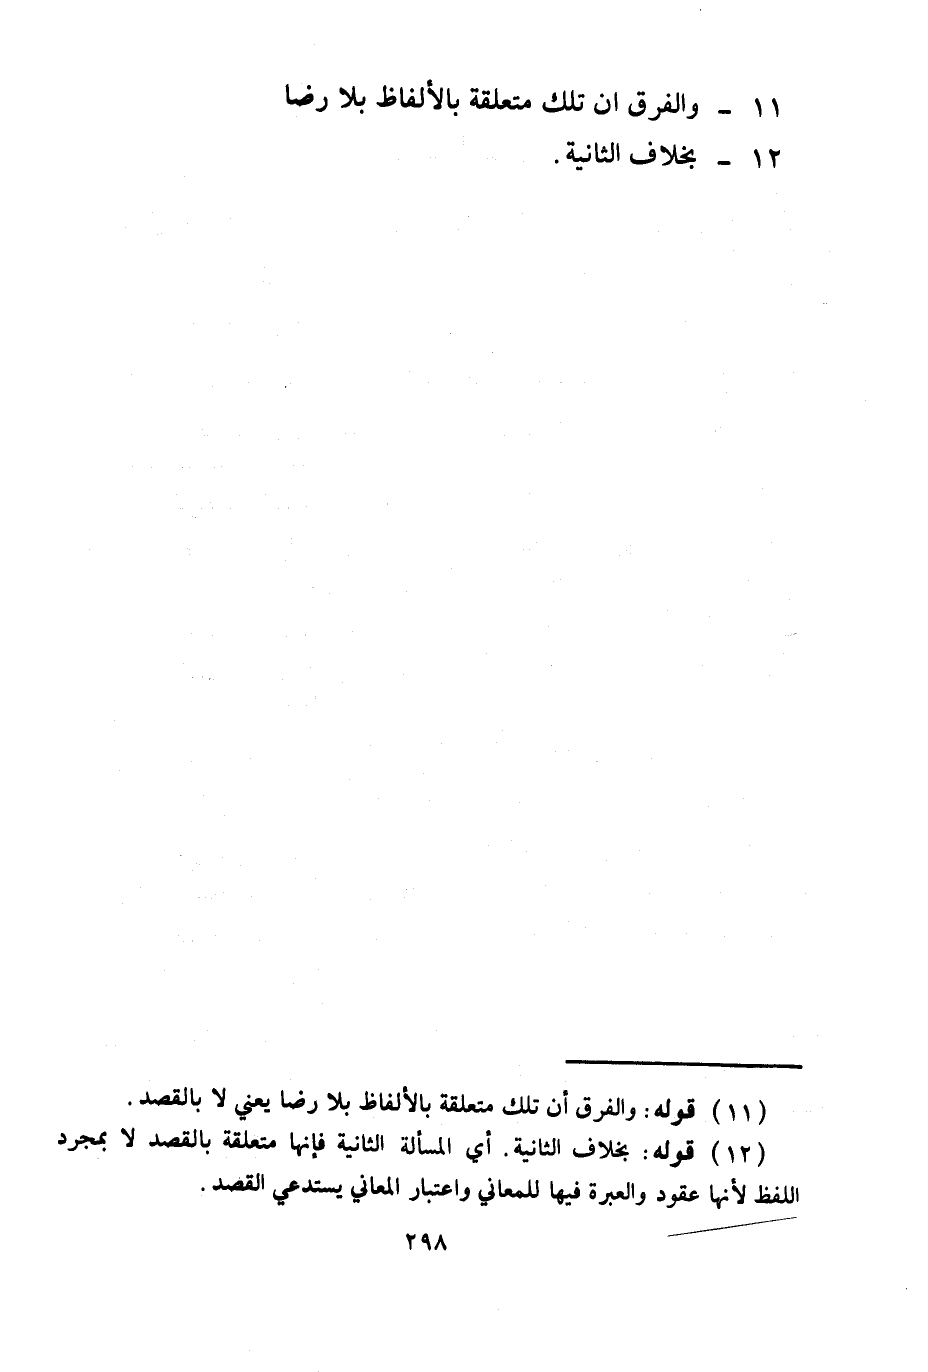 ١١ - والفرق ان تلك متعلقة بالألفاظ بلا رضا
١٢ - بخلاف الثانية .
(١١) قوله: والفرق أن تلك متعلقة بالألفاظ بلا رضا يعني لا بالقصد .
(١٢) قوله: بخلاف الثانية. أي المسألة الثانية فإنها متعلقة بالقصد لا بمجرد
اللفظ لأنها عقود والعبرة فيها للمعاني واعتبار المعاني يستدعي القصد .
٢٩٨